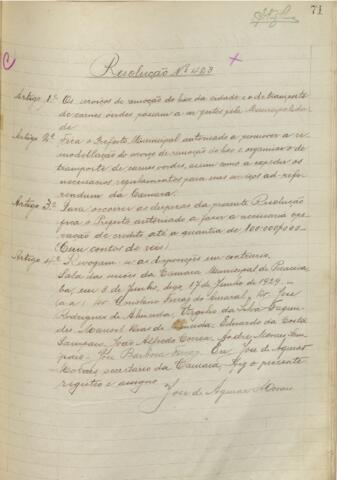 71
Resolução Nº 423
Artigo 1º Os serviços de remoção do lixo da cidade e o de transporte
de carnes verdes passam a ser feitos pela Municipalida-
de
Artigo 2º Fica o Prefeito Municipal autorisado a promover a re-
modellação do serviço de remoção do lixo e organisar o de
transporte de carnes verdes, assim como a expedir os
necessarios regulamentos para esses serviços ad-refe-
rendum da Camara.
Artigo 3º Para occorrer as despezas da presente Resolução
fica o Prefeito autorisado a fazer a necessaria ope-
ração de credito até a quantia de 100:000$000
(Cem contos de reis)
Artigo 4º Revogam-se as disposições em contrario.
Sala das sessões da Camara Municipal de Piracica-
ba, em 6 de Junho, digo, 17 de Junho de 1929.
(a.a.) Dr. Coriolano Ferraz do Amaral, Dr. José
Rodrigues de Almeida, Virgilio da Silva Fagun-
des, Manoel Dias de Almeida, Eduardo da Costa
Sampaio, João Alfredo Correa, André Moraes Sam-
paio, José Barbosa Ferraz. Eu José de Aguiar
Moraes, secretario da Camara, fiz o presente
registro e assigno.
José de Aguiar Moraes